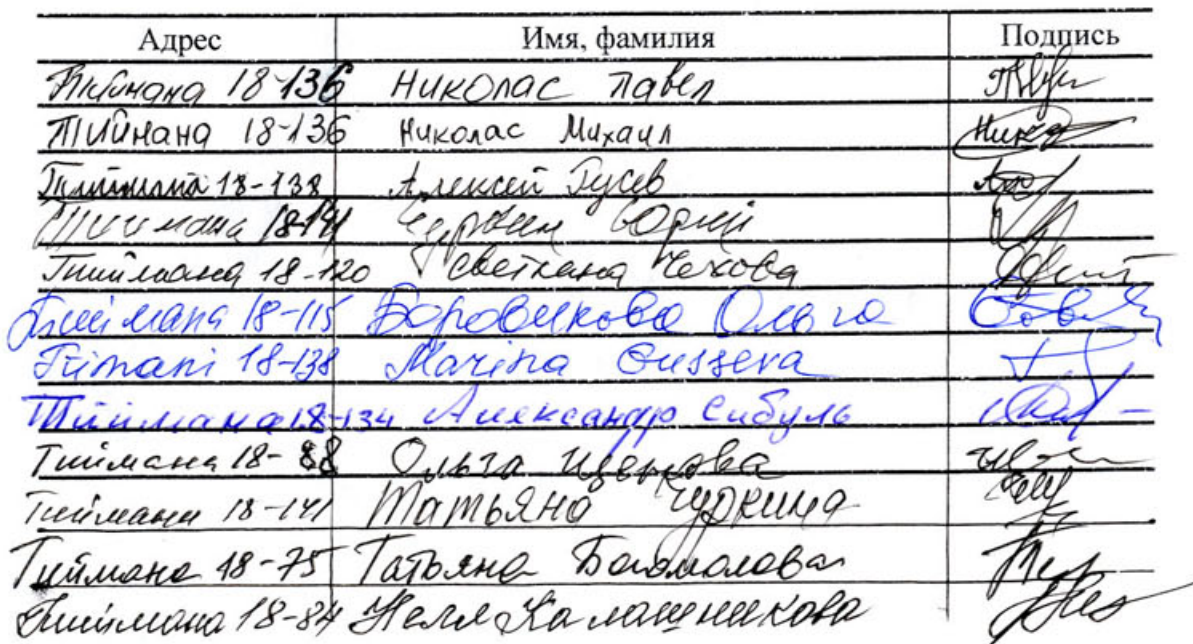 Адрес Имя, фамилия Подпись
Тиймана 18-136 Николас Павел
Тиймана 18-136 Николас Михаил
Тиймана 18-138 Алексей Гусев
Тиймана 18-141 Чуркин Юрий
Тиймана 18-120 Светлана Чехова
Тиймана 18-115 Боровикова Ольга
Tiimani 18-138 Marina Gusseva
Тиймана 18-134 Александр Сибуль
Тиймана 18-88 Ольга
Тиймана 18-141 Татьяна Чуркина
Тиймана 18-75 Татьяна Богомолова
Тиймана 18-84 Нелля Калашникова